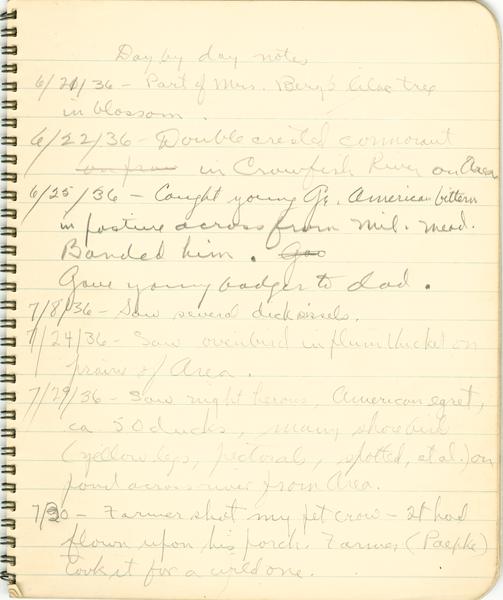 Day by day notes
6/21/36 - Part of Mrs. Berg's lilac tree
in blossom.
6/22/36 - Double crested cormorant
in Crawfish River on Area
6/25/36 - Caught young Gr. American bittern
in pasture across from Mil. Mead.
Banded him. Goo
Gave young badger to dad.
7/8/36 - Saw several dickcissels.
7/24/36 - Saw ovenbird in plum thicket on
prairie of Area.
7/29/36 - Saw night herons, American egret,
ca. 50 ducks, many shore bird
(yellow legs, pectorals, spotted, et al.) on
pond across river from Area.
7/30 - Farmer shot my pet crow - It had
flown upon his porch. Farmer (Paepke)
took it for a wild one.